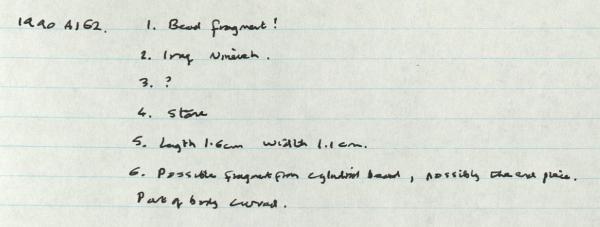 1990 A162. 1. Bead fragment!
2. Iraq Nineveh.
3. ?
4. Stone
5. Length 1.6cm width 1.1cm.
6. Possible fragment from cylindrical bead, possibly the end piece.
Part of body curved.